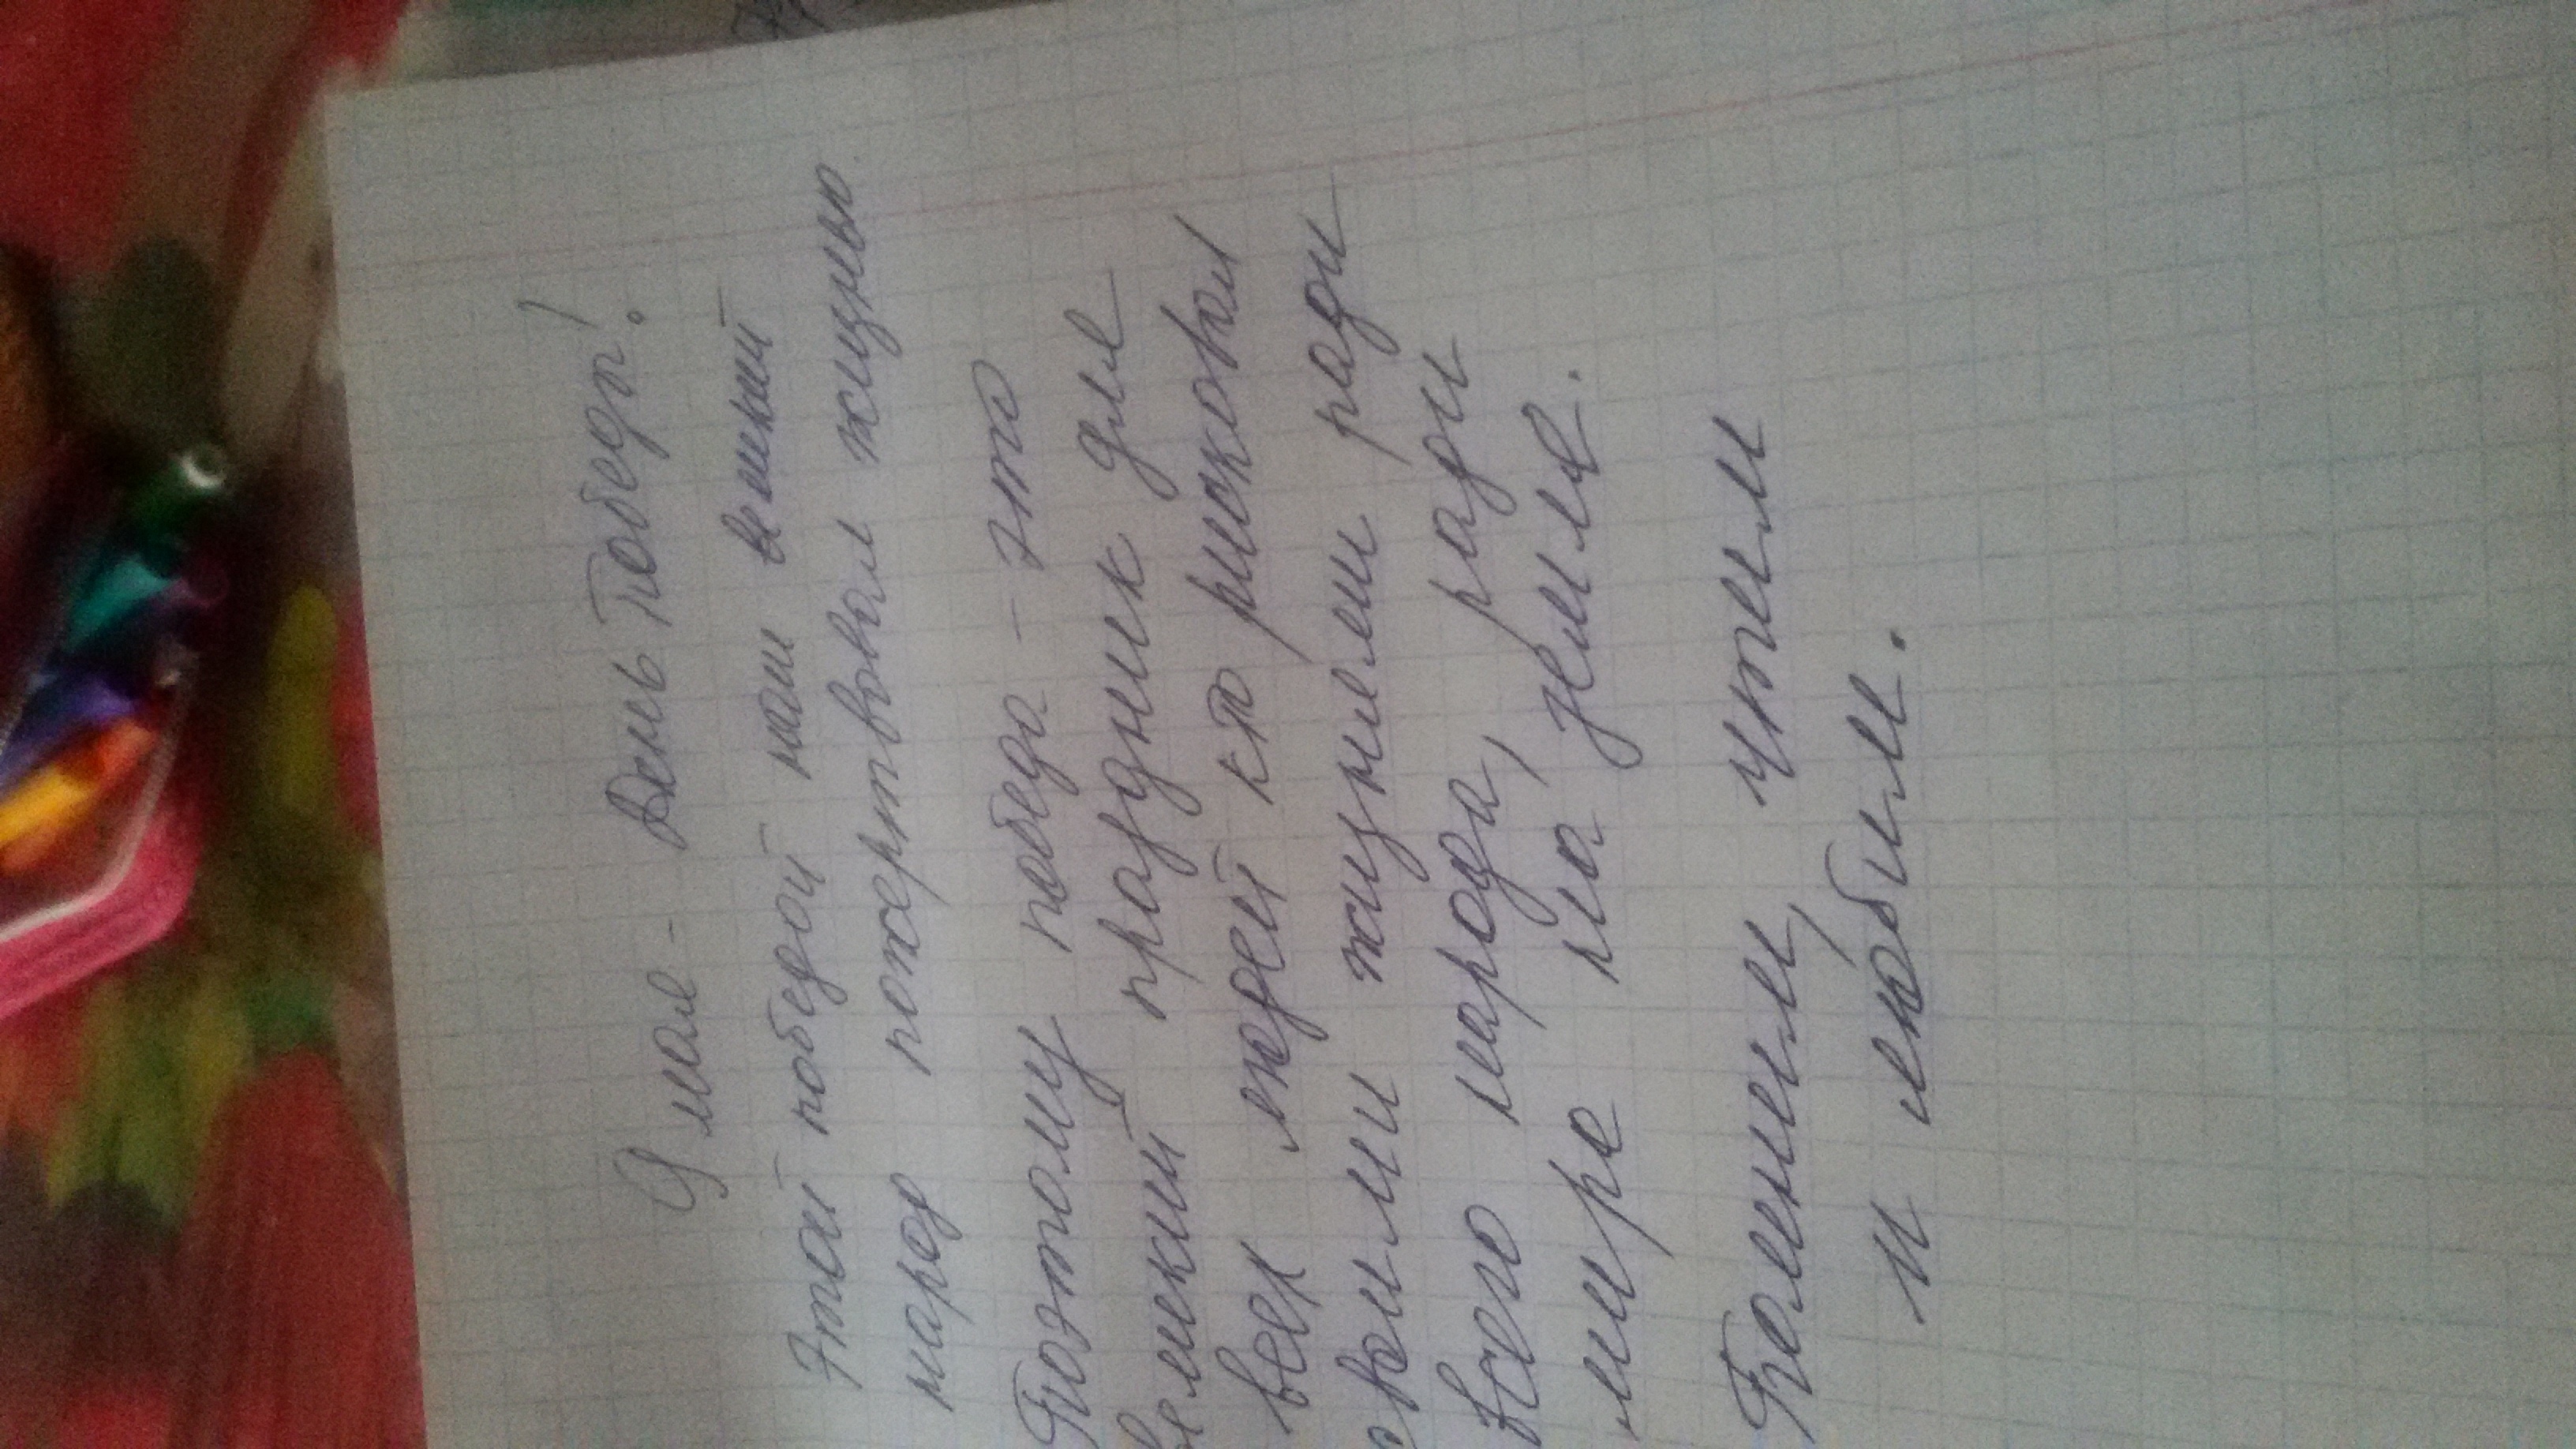 9 мая - День Победы!
Этой победой наш великий
народ пожертвовал жизнью
Поэтому победа - это
великий праздник для
всех людей кто рисковал
своими жизнями ради
всего народа, ради
мира на земле.
Помним, чтим
и любим.